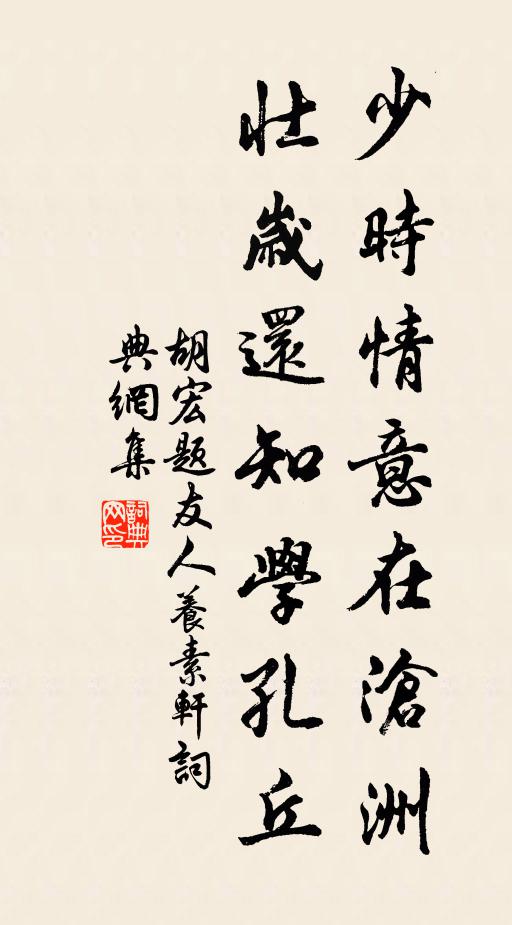 少時情意在滄洲
壯歲還知學孔丘
胡宏題友人養素軒詞
典網集
詞典網印